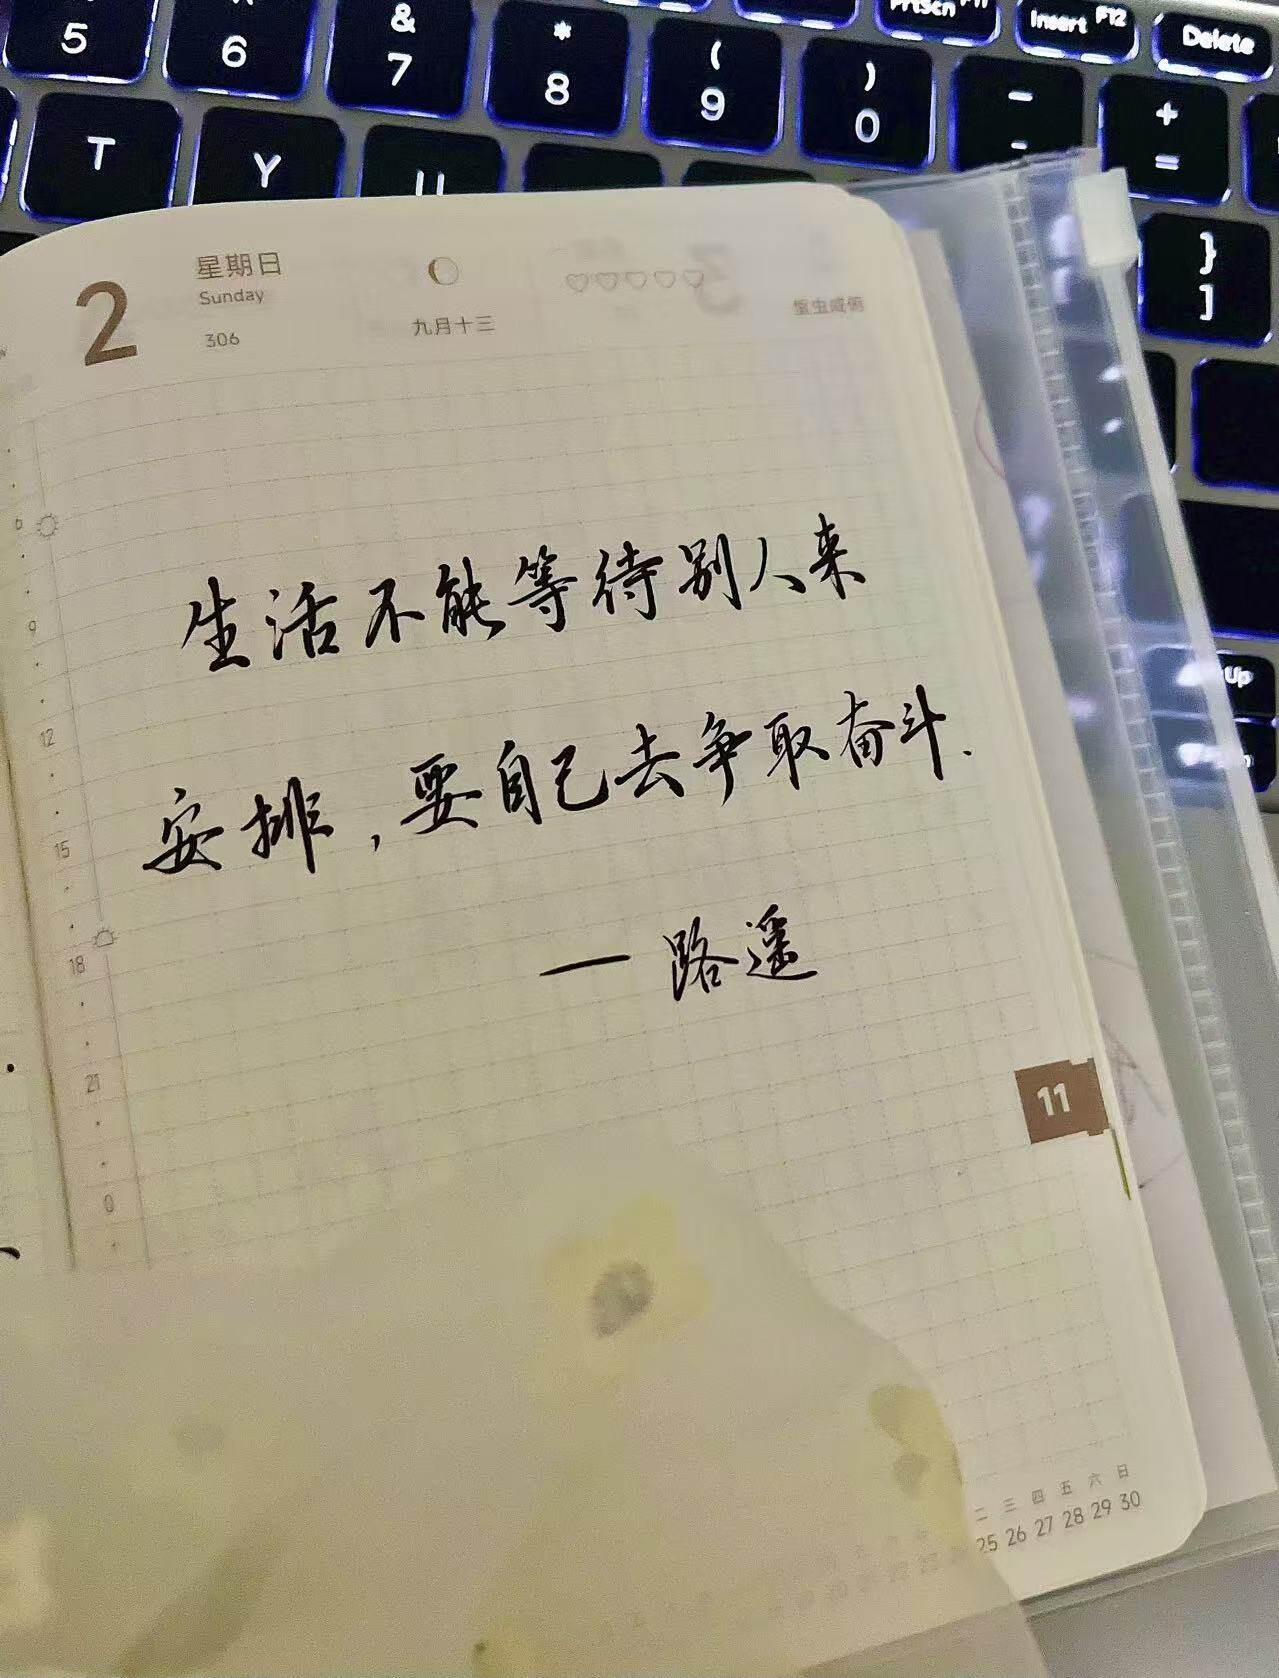 5 6 & 7 * 8 ( 9 ) 0 - + =
PrtSc Insert F12 Delete
T Y U } ]
2 星期日
Sunday
306
九月十三
6
9
12
15
18
21
0
生活不能等待别人来
安排,要自己去争取奋斗.
— 路遥
11
二 三 四 五 六 日
25 26 27 28 29 30